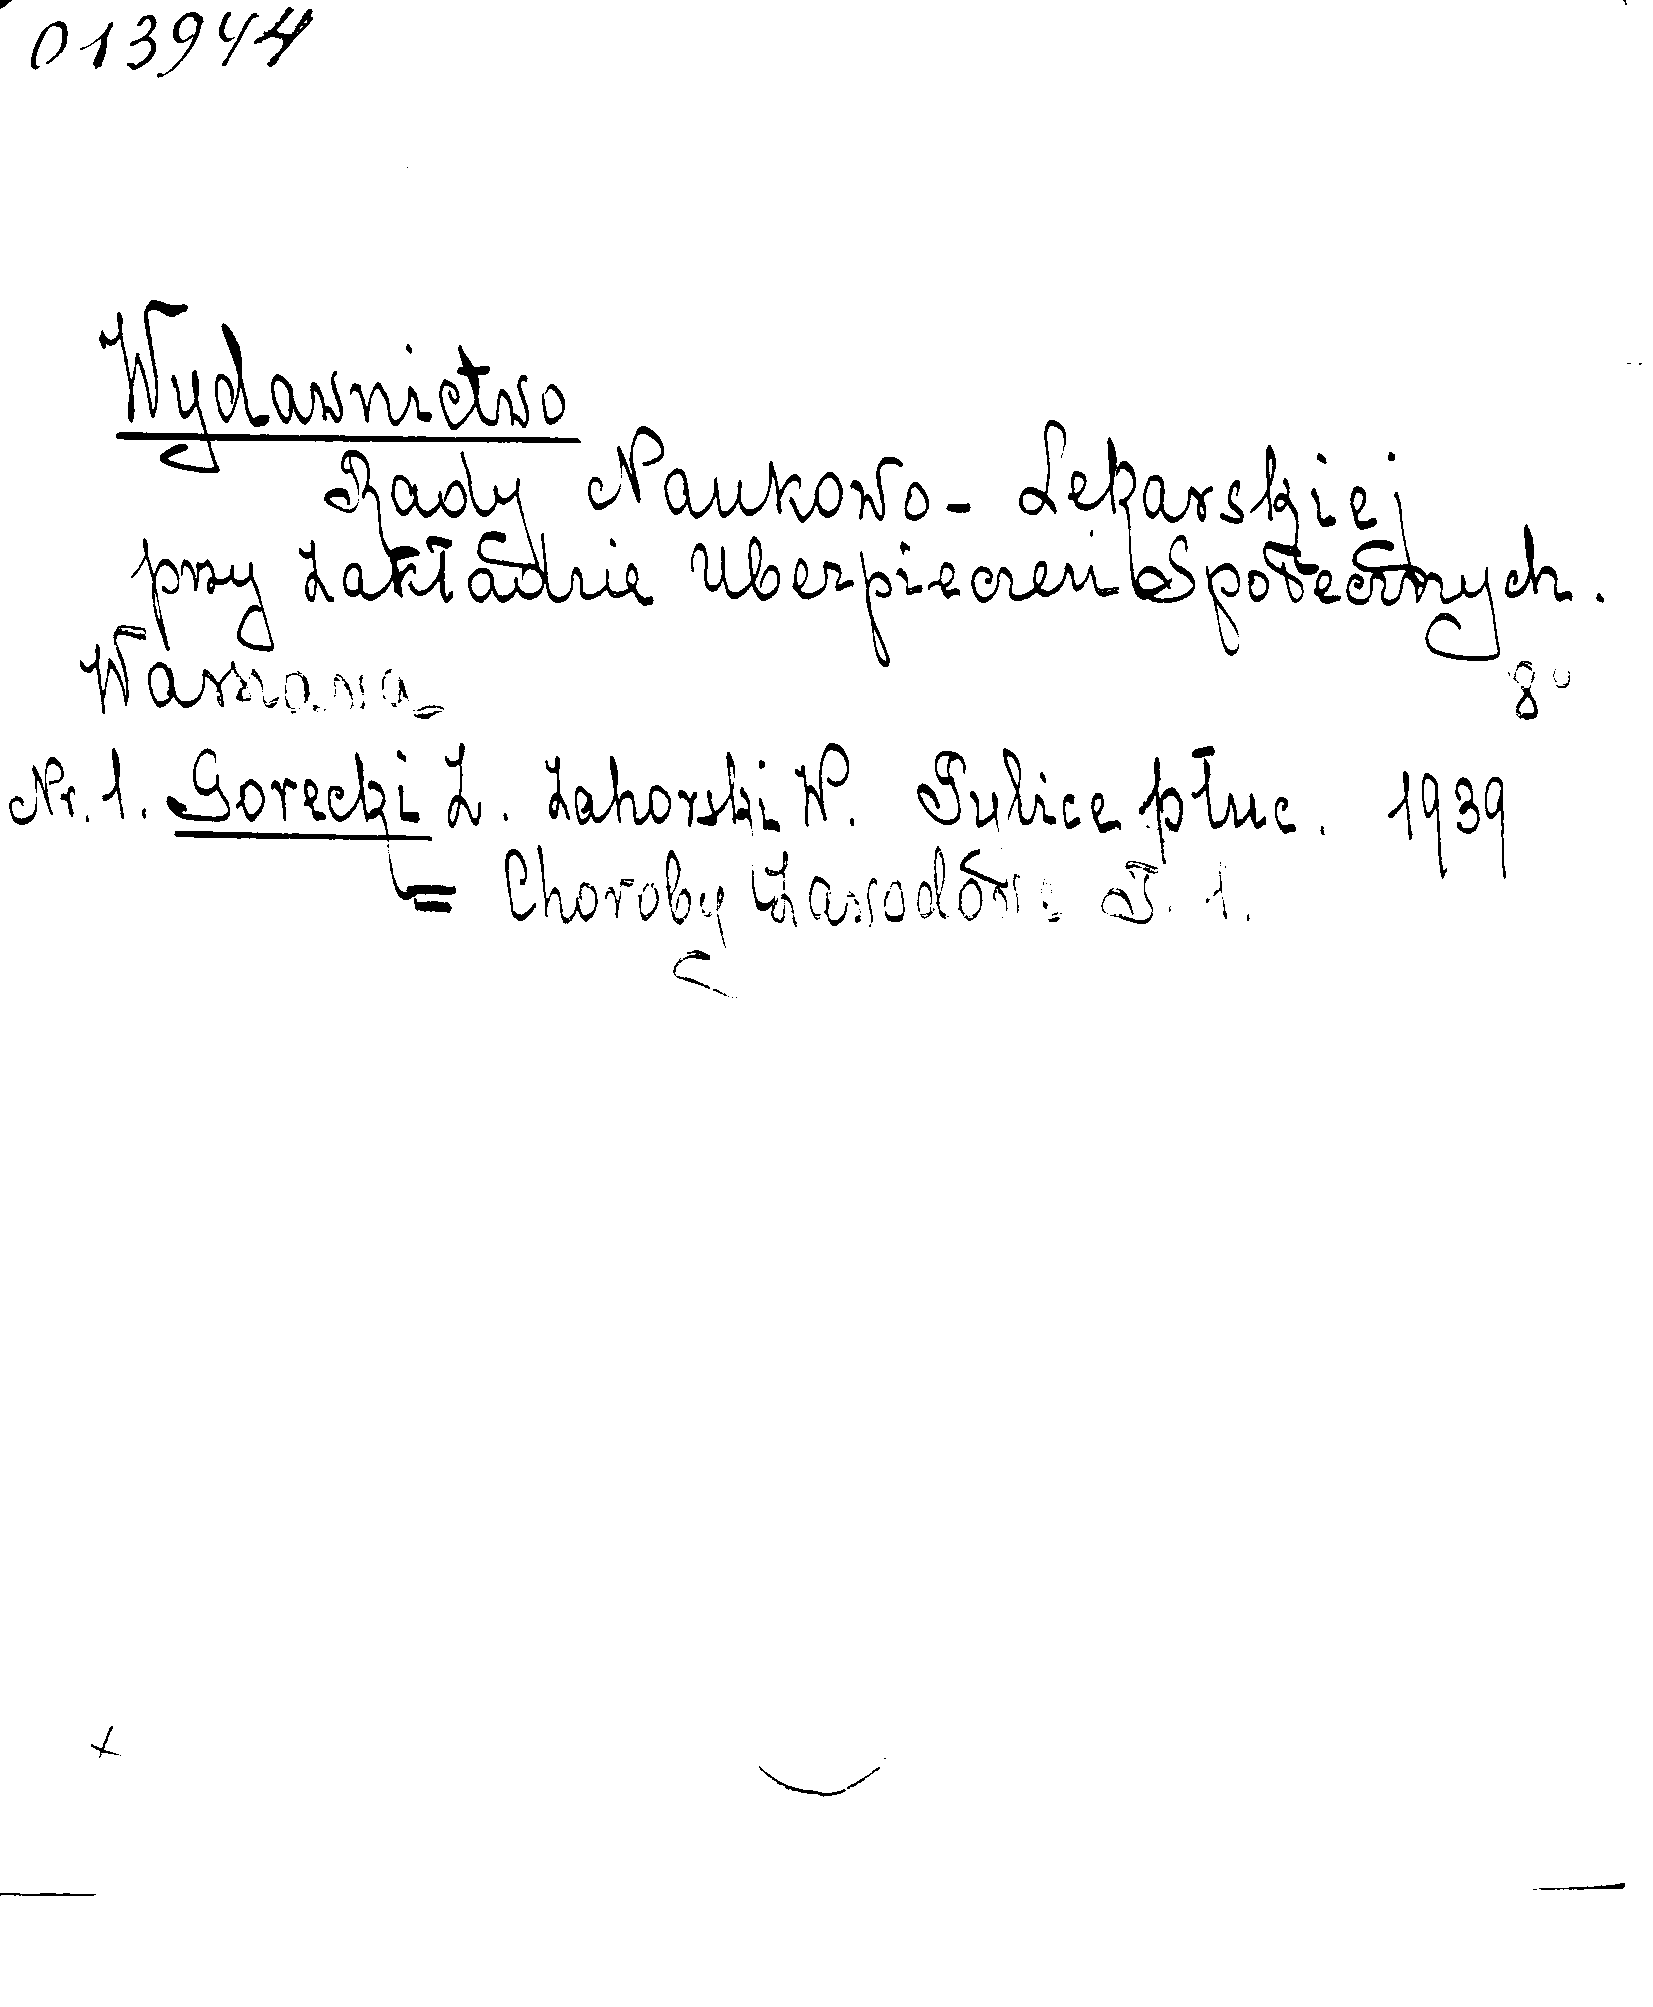 013944
Wydawnictwo
Rady Naukowo-Lekarskiej
przy Zakładzie Ubezpieczeń Społecznych.
Warszawa 8°
Nr. 1. Gorecki Z. Zahorski W. Pylice płuc. 1939
= Choroby Zawodowe T. 1.